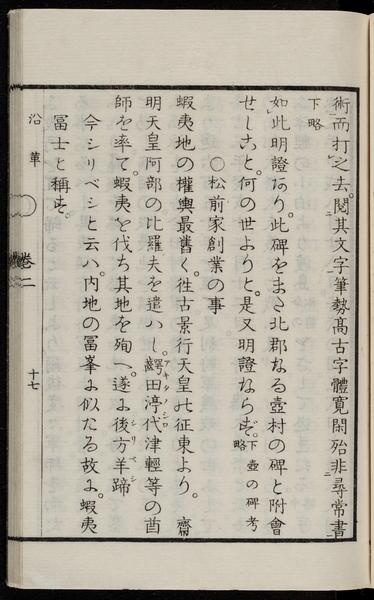 術而打之去。閲其文字筆勢高古字體寛閑殆非尋常書
下略
如此明證あり。此碑をまさ北郡なる壺村の碑と附會
せしこと。何の世よりと。是又明證ならず。下略 壺の碑考
○松前家創業の事
蝦夷地の權輿最舊く。徃古景行天皇の征東より。齋
明天皇阿部の比羅夫を遣ハし。齶田渟代津輕等の酋
師を率て。蝦夷を伐ち其地を殉へ。遂に後方羊蹄
今シリベシと云ハ。内地の冨峯に似たる故に。蝦夷
冨士と稱せ。
沿革
卷二
十七